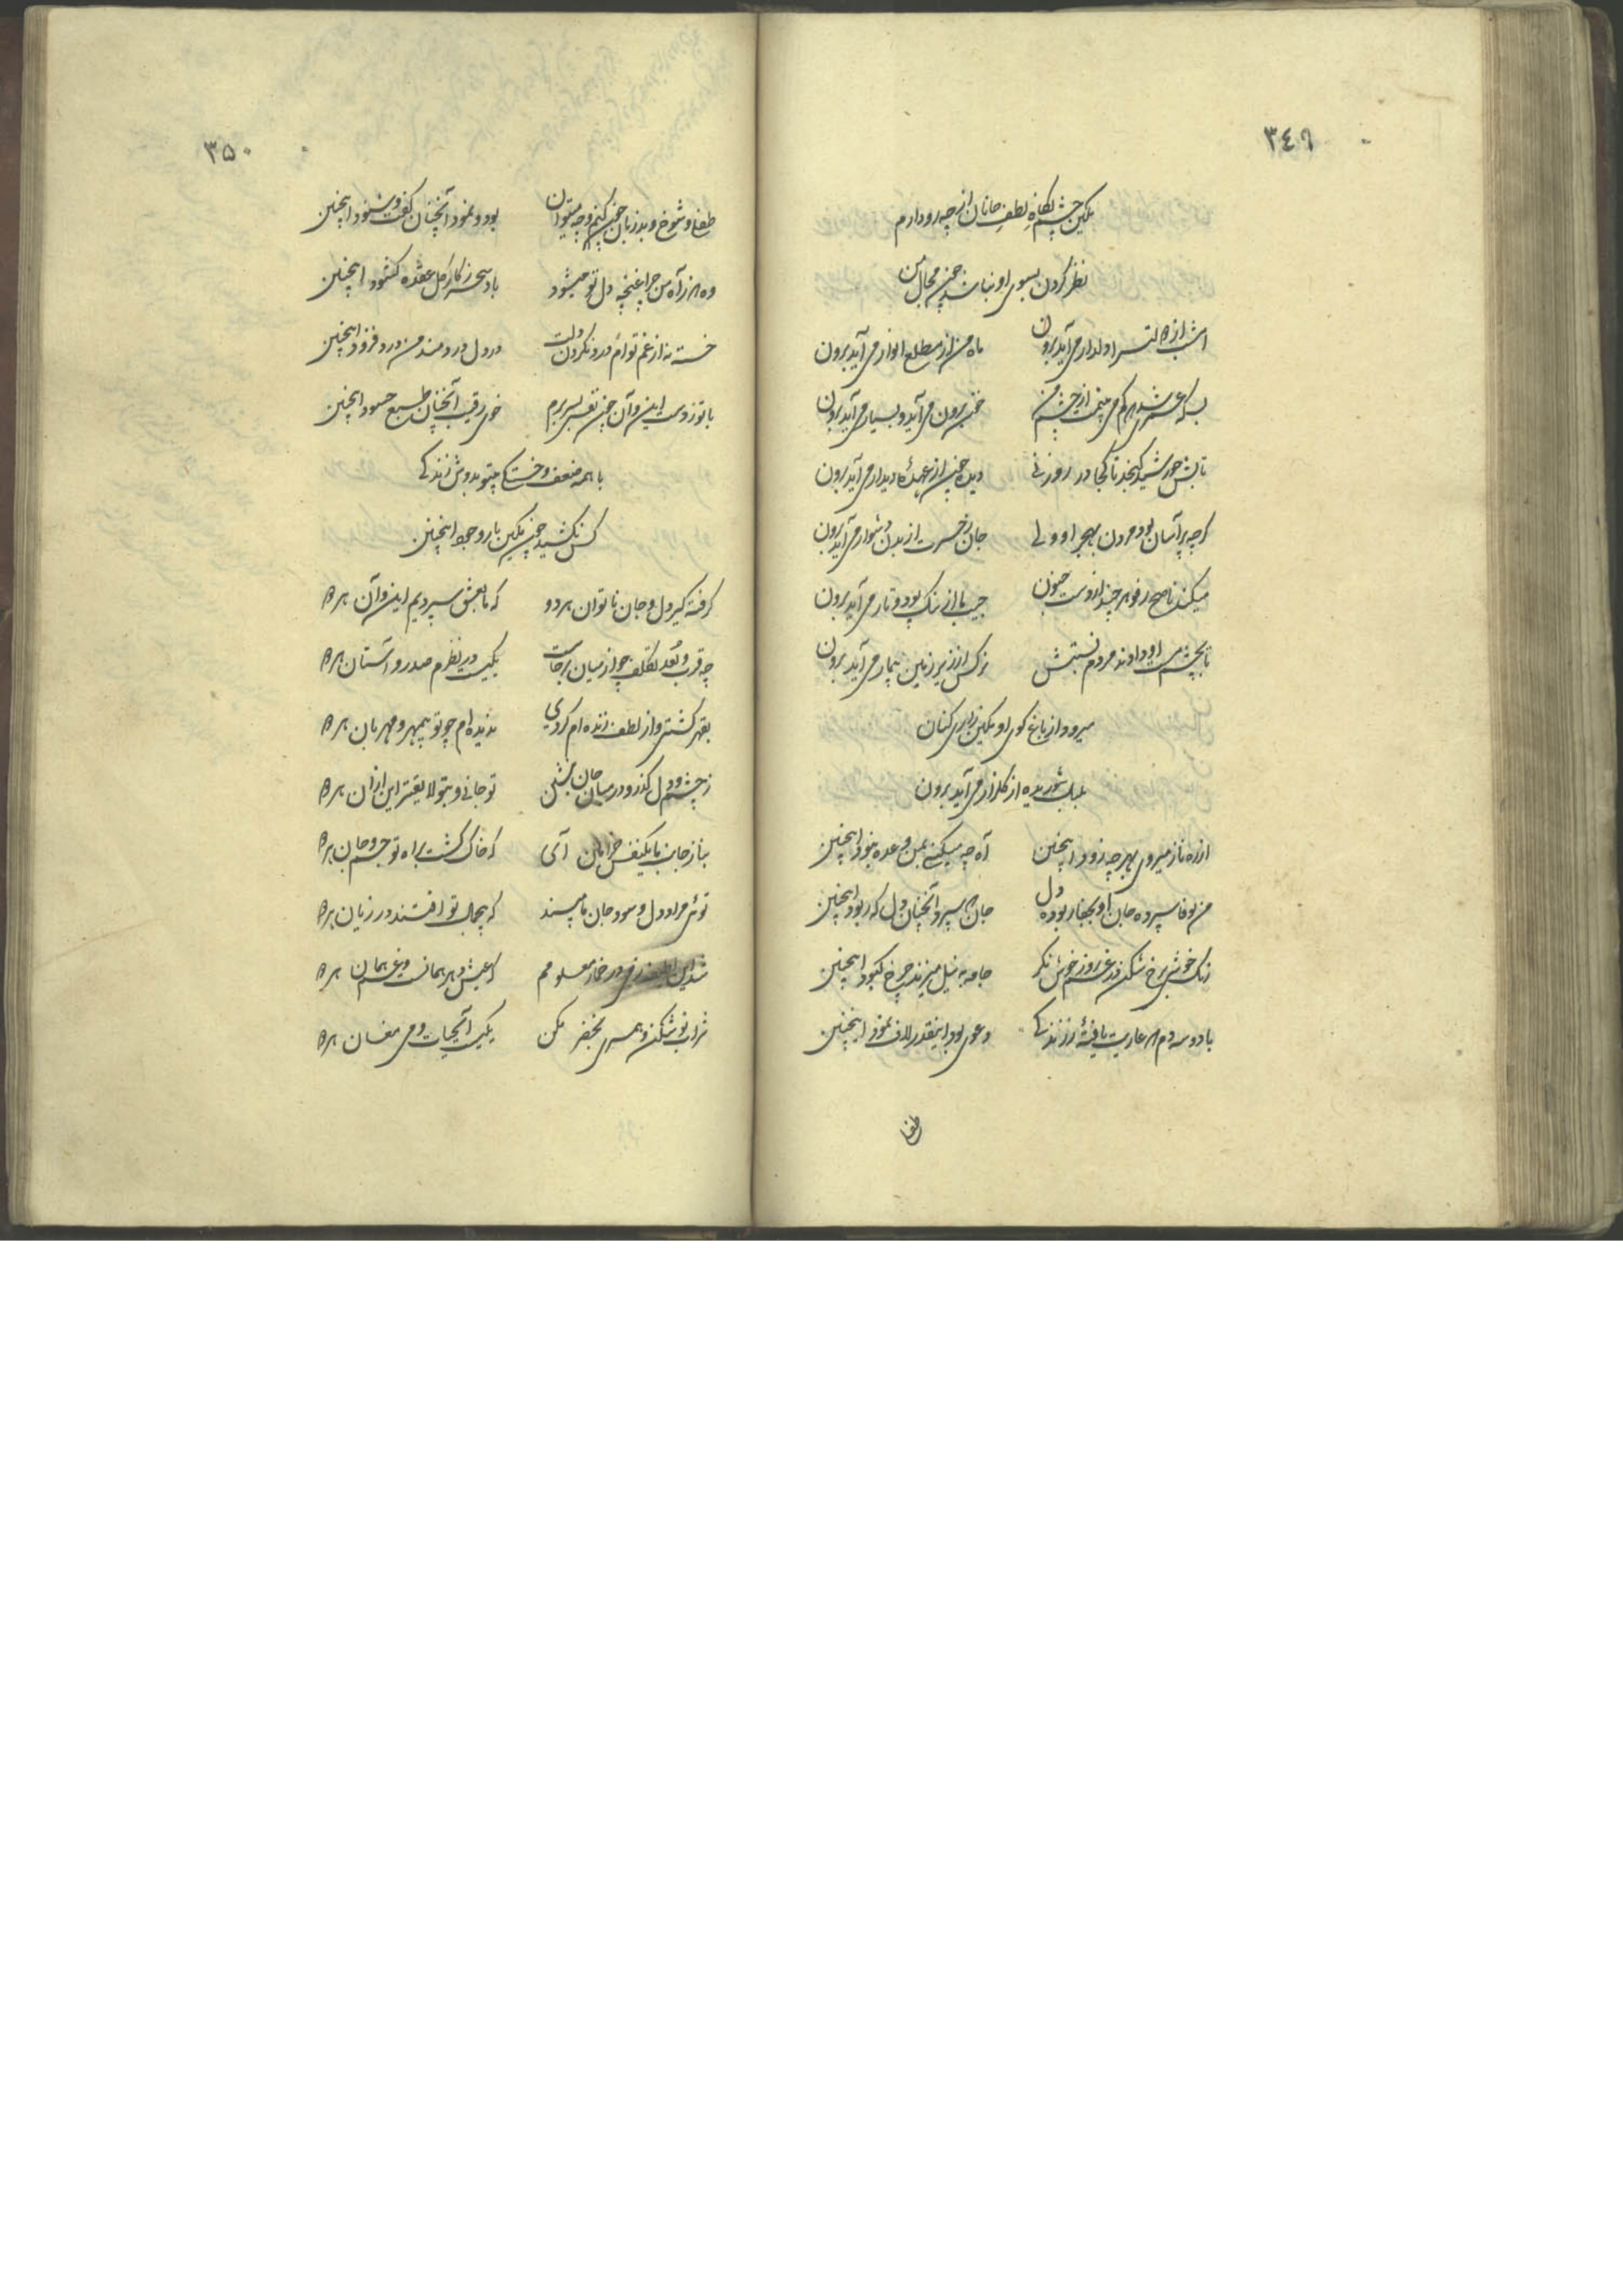 ۳٤۹
تمکین چشم نگاه لطف جانان از چه رو دارم
نظر کردن بسوی او نباشد چون مجال من
امشب از در دلدار می آید برون ماه من از مطلع انوار می آید برون
بسکه عمری شد که کم می بینم از چشم من خون برون می آید و بسیار می آید برون
تابش خورشید گنجد تا کجا در روزنی دیده چون از عهدهٔ دیدار می آید برون
گرچه پر آسان بود مردن بهجر او ولی جان ز حسرت از بدن دشوار می آید برون
میکند ناصح رفو هر چند از دست جنون جیب ما از ننگ پود و تار می آید برون
تا بچشم او دادند مردم نسبتش نرگس از زیر زمین بیمار می آید برون
میرود از باغ کوی او تمکین زاری کنان
بلبل شوریده از گلزار می آید برون
از ره ناز میروی بهر چه زود اینچنین آه چه میکنی بمن وعده نبود اینچنین
من بوفا سپرده جان او بجفا ربوده دل جان که سپرد آنچنان دل که ربود اینچنین
رنگ خوشی برخ شکن در غم روز خوش نگر جامه به نیل میزند چرخ کبود اینچنین
با دو سه دم که عاریت یافتهٔ ز زندگی دعوی بود اینقدر لاف نمود اینچنین
طفل
۳۵۰
طفل و شوخ و بدزبان چون کنم و چه میتوان بود و نمود آنچنان گفت و شنود اینچنین
وه که ز آه من چرا غنچه دل تو میشود باد سحر ز کار گل عقده گشود اینچنین
خسته نه از غم توام درد نکردن دلت در دل دردمند من درد فزود اینچنین
با تو ز دست این و آن چون نفسی بسر برم خوی رقیب آنچنان طبع حسود اینچنین
با همه ضعف و خستگی بیتو بدوش زندگی
کس نکشید چون تمکین بار وجود اینچنین
گرفته گیر دل و جان ناتوان هر دو که ما بعشق سپردیم این و آن هر دو
چه قرب و بعد تکلف چو از میان برخاست یکیست در نظرم صدر و آستان هر دو
بقهر کشتی و از لطف زنده ام کردی ندیده ام چو تو بیمهر و مهربان هر دو
ز چشم و دل گذر و در میان جان بنشین تو جانی و بتو لایقتر این از آن هر دو
بناز جانب ما یکنفس خرامان آی که خاک گشت براه تو جسم و جان هر دو
توئی مراد دل و سود جان ما مپسند که بیجمال تو افتند در زیان هر دو
شد این ز می در خمار معلومم که عیش دهر همانست و غم همان هر دو
شراب نوش تمکین و همسری بخضر مکن یکیست آبحیات و می مغان هر دو